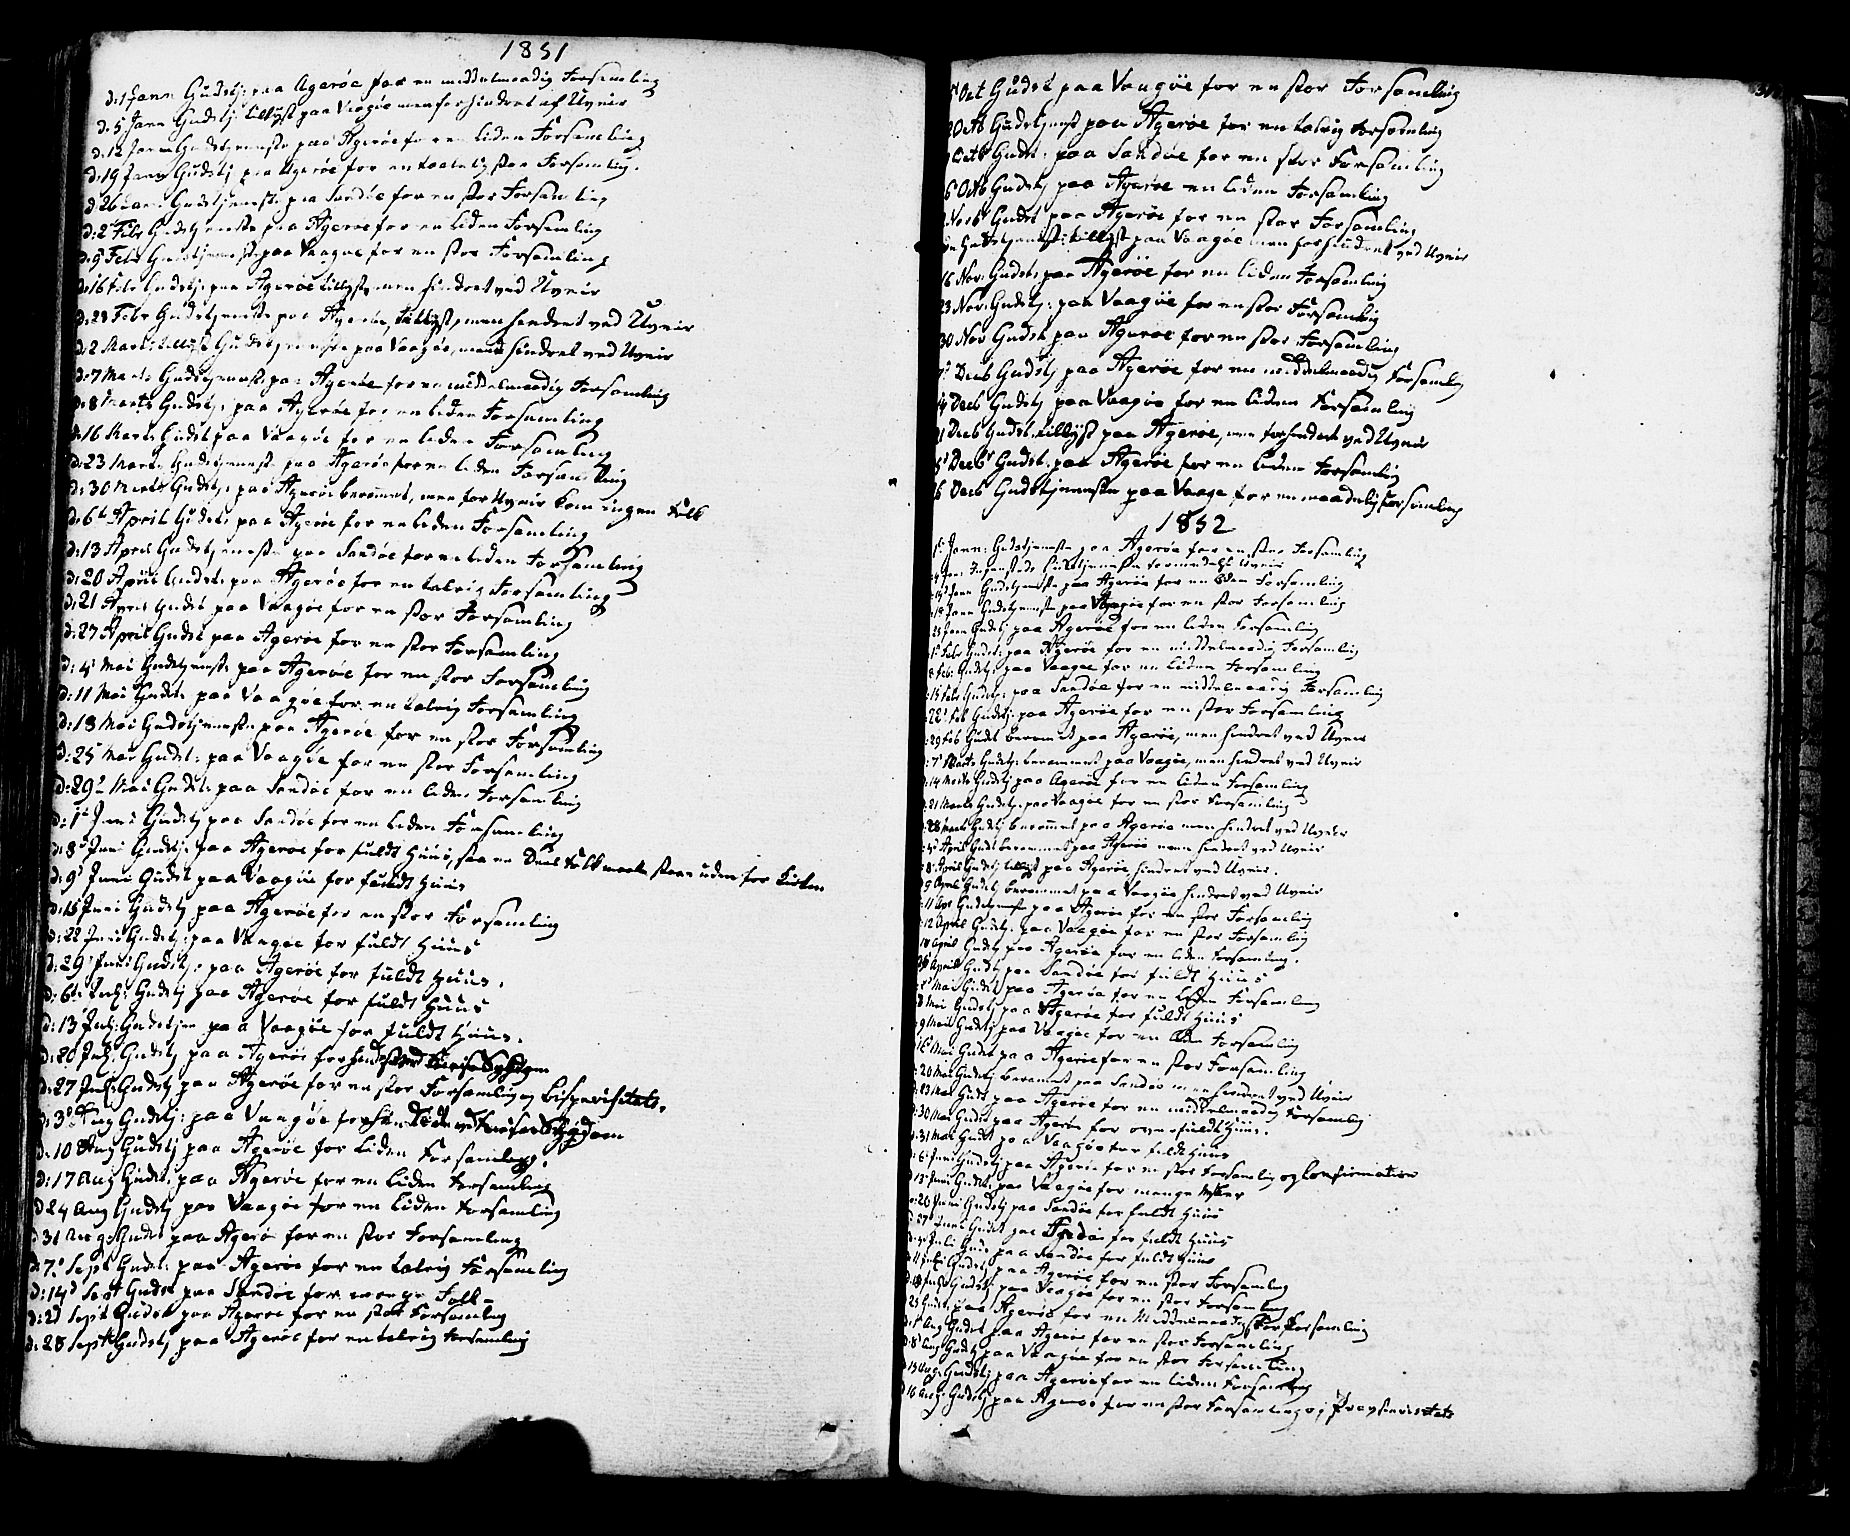 1851
d: 1 Jann Gudstj: paa Agerøe for en middelmaadig Forsamling
d: 5 Jann Gudstj: tillyst paa Vaagøe men forhindret af Uveir
d: 12 Jann Gudstjeneste paa Agerøe for en liden Forsamling
d: 19 Jann Gudstj paa Agerøe for en stor Forsamling.
d 26 Jann Gudstjeneste paa Sandøe for en stor Forsamling
d: 2 Febr Gudstjeneste paa Agerøe for en liden Forsamling
d: 9 Febr Gudstjeneste paa Vaagøe for en stor Forsamling
d: 16 Febr Gudstj: paa Agerøe tillyst, men hindret ved Uveir
d: 23 Febr Gudstjeneste paa Agerøe, tillyst, men hindret ved Uveir
d: 2 Marts tillyst Gudstjeneste paa Vaagøe, men hindret ved Uveir
d: 7 Marts Gudstjeneste paa Agerøe for en middelmaadig Forsamling
d: 8 Marts Gudstj: paa Agerøe for en liden Forsamling
d: 16 Marts Gudst paa Vaagøe for en liden Forsamling
d: 23 Marts Gudstjeneste paa Agerøe for en liden Forsamling
d: 30 Marts Gudstj: paa Agerøe berammet, men for Uveir kom ingen Folk
d: 6 April Gudst: paa Agerøe for en liden Forsamling
d: 13 April Gudstjeneste paa Sandøe for en liden Forsamling
d: 20 April Gudst: paa Agerøe for en talrig Forsamling
d: 21 April Gudst paa Vaagøe for en stor Forsamling
d: 27 April Gudst paa Agerøe for en stor Forsamling
d: 4 Mai Gudstjeneste paa Agerøe for en stor Forsamling
d: 11 Mai Gudst: paa Vaagøe for en talrig Forsamling
d: 18 Mai Gudstjeneste paa Agerøe for en stor Forsamling
d: 25 Mai Gudst: paa Vaagøe for en stor Forsamling
d: 29 Mai Gudst: paa Sandøe for en liden Forsamling
d: 1 Juni Gudstj paa Sandøe for en liden Forsamling
d: 8 Juni Gudstj: paa Agerøe for fuldt Huus, saa en Deel Folk maatte staae uden for Kirken
d: 9 Juni Gudst paa Vaagøe for fuldt Huus
d: 15 Juni Gudstj paa Agerøe for en stor Forsamling
d: 22 Juni Gudstj: paa Vaagøe for fuldt Huus
d: 29 Juni Gudstj: paa Agerøe for fuldt Huus.
d: 6 Juli: Gudstj paa Agerøe for fuldt Huus
d: 13 Juli: Gudstjen paa Vaagøe for fuldt Huus.
d: 20 Juli: Gudstj paa Agerøe
d: 27 Juli: Gudstj paa Agerøe for en stor Forsamling og Bispevisitats.
d: 3 Aug Gudstj: paa Vaagøe
d: 10 Aug Gudstj paa Agerøe for liden Forsamling.
d: 17 Aug Gudst: paa Agerøe for en liden Forsamling
d 24 Aug Gudstj paa Vaagøe for en liden Forsamling
d 31 Aug Gudst paa Agerøe for en stor Forsamling
d: 7 Sept Gudst: paa Agerøe for en talrig Forsamling
d: 14 Sept Gudst paa Sandøe for mange Folk
d: 21 Sept Gudst paa Agerøe for en stor Forsamling
d: 28 Sept Gudstj paa Agerøe for en talrig Forsamling
Oct Gudst paa Vaagøe for en stor Forsamling
Octb Gudstjenest paa Agerøe for en talrig Forsamling
Octb Gudst: paa Sandøe for en stor Forsamling
Octb Gudstj paa Agerøe en liden Forsamling
Novb Gudst paa Agerøe for en stor Forsamling
Gudstjeneste tillyst paa Vaagøe men forhindret ved Uveir
16 Nov: Gudst: paa Agerøe for en liden Forsamling
23 Nov: Gudst: paa Vaagøe for en stor Forsamling
30 Nov Gudst paa Agerøe for en stor Forsamling
7 Decb Gudstj paa Agerøe for en middelmaadig Forsamling
14 Decb Gudstj paa Vaagøe for en liden Forsamling
Decb Gudst. tillyst paa Agerøe, men forhindret ved Uveir
Decb Gudst: paa Agerøe for en liden Forsamling
Decb Gudstjeneste paa Vaagø for en maadelig Forsamling
1852
1 Jann: Gudstjeneste paa Agerøe for en stor Forsamling
Jann: Gudstjeneste formedelst Uveir
Jann Gudstjeneste paa Agerøe for en liden Forsamling
Jann Gudstjeneste paa Vaagøe for en stor Forsamling
25 Jann Gudstj paa Agerøe for en liden Forsamling
1 Febr Gudst: paa Agerøe for en middelmaadig Forsamling
8 Feb: Gudstj: paa Vaagøe for en liden Forsamling
15 Febr Gudstj: paa Sandøe for en middelmaadig Forsamling
22 Feb Gudstj: paa Agerøe for en stor Forsamling
29 Feb Gudst berammet paa Agerøe, men hindret ved Uveir
7 Marts Gudstj: berammet paa Vaagøe, men hindret ved Uveir
14 Marts Gudstj paa Agerøe for en liden Forsamling
21 Marts Gudstj: paa Vaagøe for en stor Forsamling
28 Marts Gudstj berammet paa Agerøe men hindret ved Uveir
4 April Gudst berammet paa Agerøe men hindret ved Uveir
8 April Gudstj tillyst paa Agerøe hindret ved Uveir.
9 April Gudstj berammet paa Vaagøe hindret ved Uveir
11 Apr Gudstjeneste paa Agerøe for en stor Forsamling
12 April Gudstj. paa Vaagøe for en stor Forsamling
18 April Gudstj paa Agerøe for en liden Forsamling.
25 April Gudst paa Sandøe for fuldt Huus
2 Mai Gudst paa Agerøe for en liden Forsamling
Mai Gudstj paa Agerøe for fuldt Huus
9 Mai Gudstj paa Vaagøe for en liden Forsamling
16 Mai Gudst paa Agerøe for en stor Forsamling
20 Mai Gudstj: berammet paa Sandøe men hindret ved Uveir
23 Mai Gudst paa Agerøe for en middelmaadig Forsamling
30 Mai Gudst paa Agerøe for overfuldt Huus.
31 Mai Gudst paa Vaagøe for fuldt Huus
6 Juni Gudstj paa Agerøe for en stor Forsamling og Confirmation
13 Juni Gudst: paa Vaagøe for mange Folk
20 Juni Gudstj paa Sandøe for fuldt Huus
27 Juni Gudst paa for fuldt Huus
4 Juli Gud: paa Sandøe for fuldt Huus
11 Juli Gudstj paa Agerøe for en stor Forsamling
18 Juli Gudstj: paa Vaagøe for en stor Forsamling
25 Gudst: paa Agerøe for en middelmaadig Forsamling
1 Aug Gudst paa Agerøe for en stor Forsamling
8 Aug Gudstj paa Vaagøe for en stor Forsamling
Aug: Gudstj paa Agerøe for en liden Forsamling
Aug: Gudstj paa Agerøe for en stor Forsamling og Provstevisitats